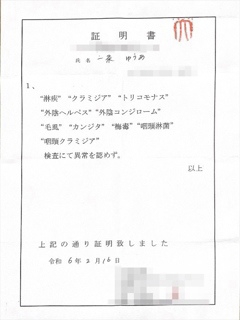 証明書
氏名 一条 ゆうあ
1、
“淋疾” “クラミジア” “トリコモナス”
“外陰ヘルペス” “外陰コンジローム”
“毛虱” “カンジタ” “梅毒” “咽頭淋菌”
“咽頭クラミジア”
検査にて異常を認めず。
以上
上記の通り証明致しました
令和 6年 2月 16日